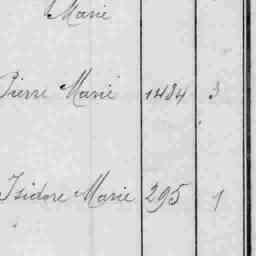 Marie
Pierre Marie 1484 3
Isidore Marie 295 1